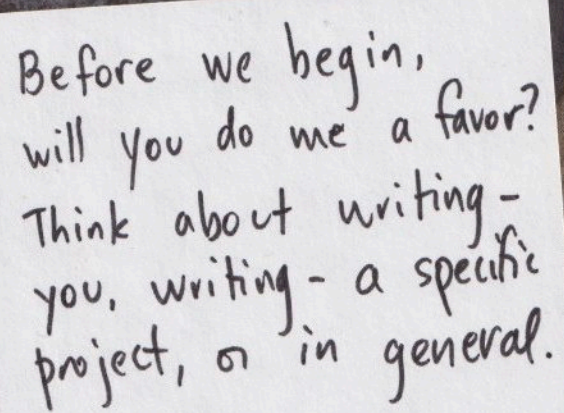 Before we begin,
will you do me a favor?
Think about writing -
you, writing - a specific
project, or in general.